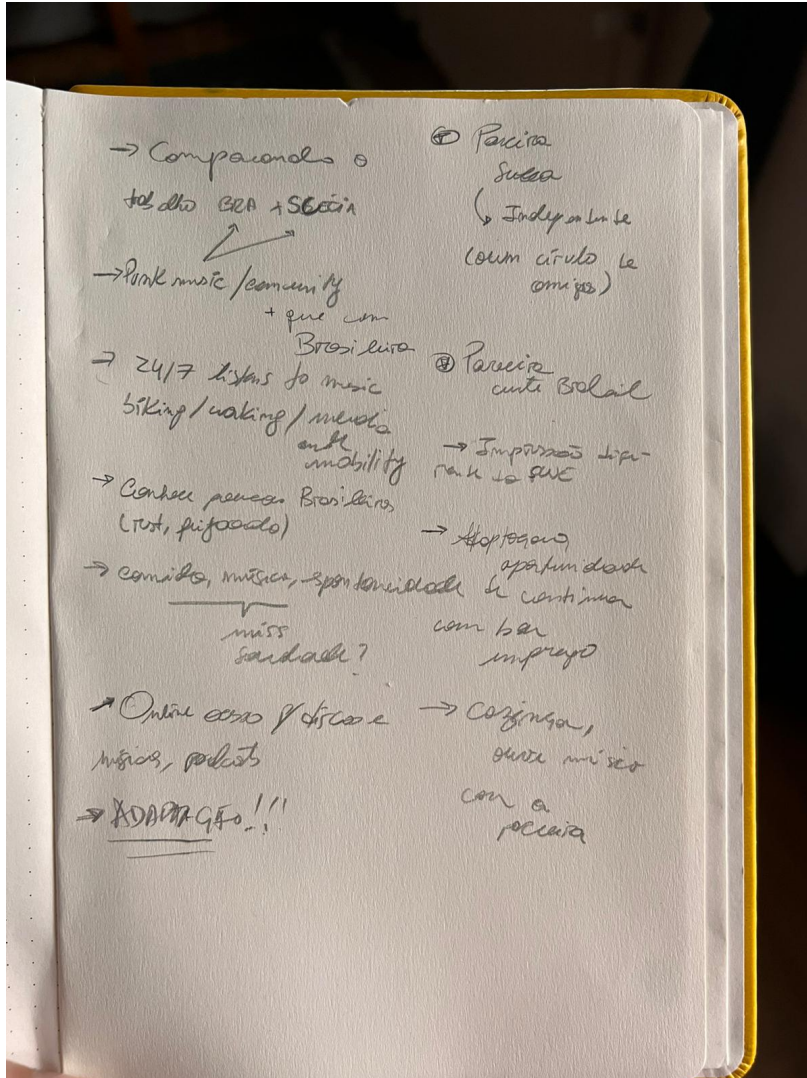 → Comparando o
trabalho BRA + SUÉCIA
→ Punk music / comunity
+ que com
Brasileira
→ 24/7 listens to music
biking / walking /
mobility
→ Conhece poucos Brasileiros
(rest, feijoada)
→ comida, música, spontaneidade
miss
saudade?
→ Online acesso p/ discos e
músicas, podcasts
→ ADAPTAÇÃO!!!
Parceira
Sueca
↳ Independente
(com círculo de
amigos)
Parceira
curte Brasil
→ Impressão dife-
rente da SWE
→
oportunidade
de continuar
com bom
emprego
→ Cozinha,
ouve música
com a
parceira